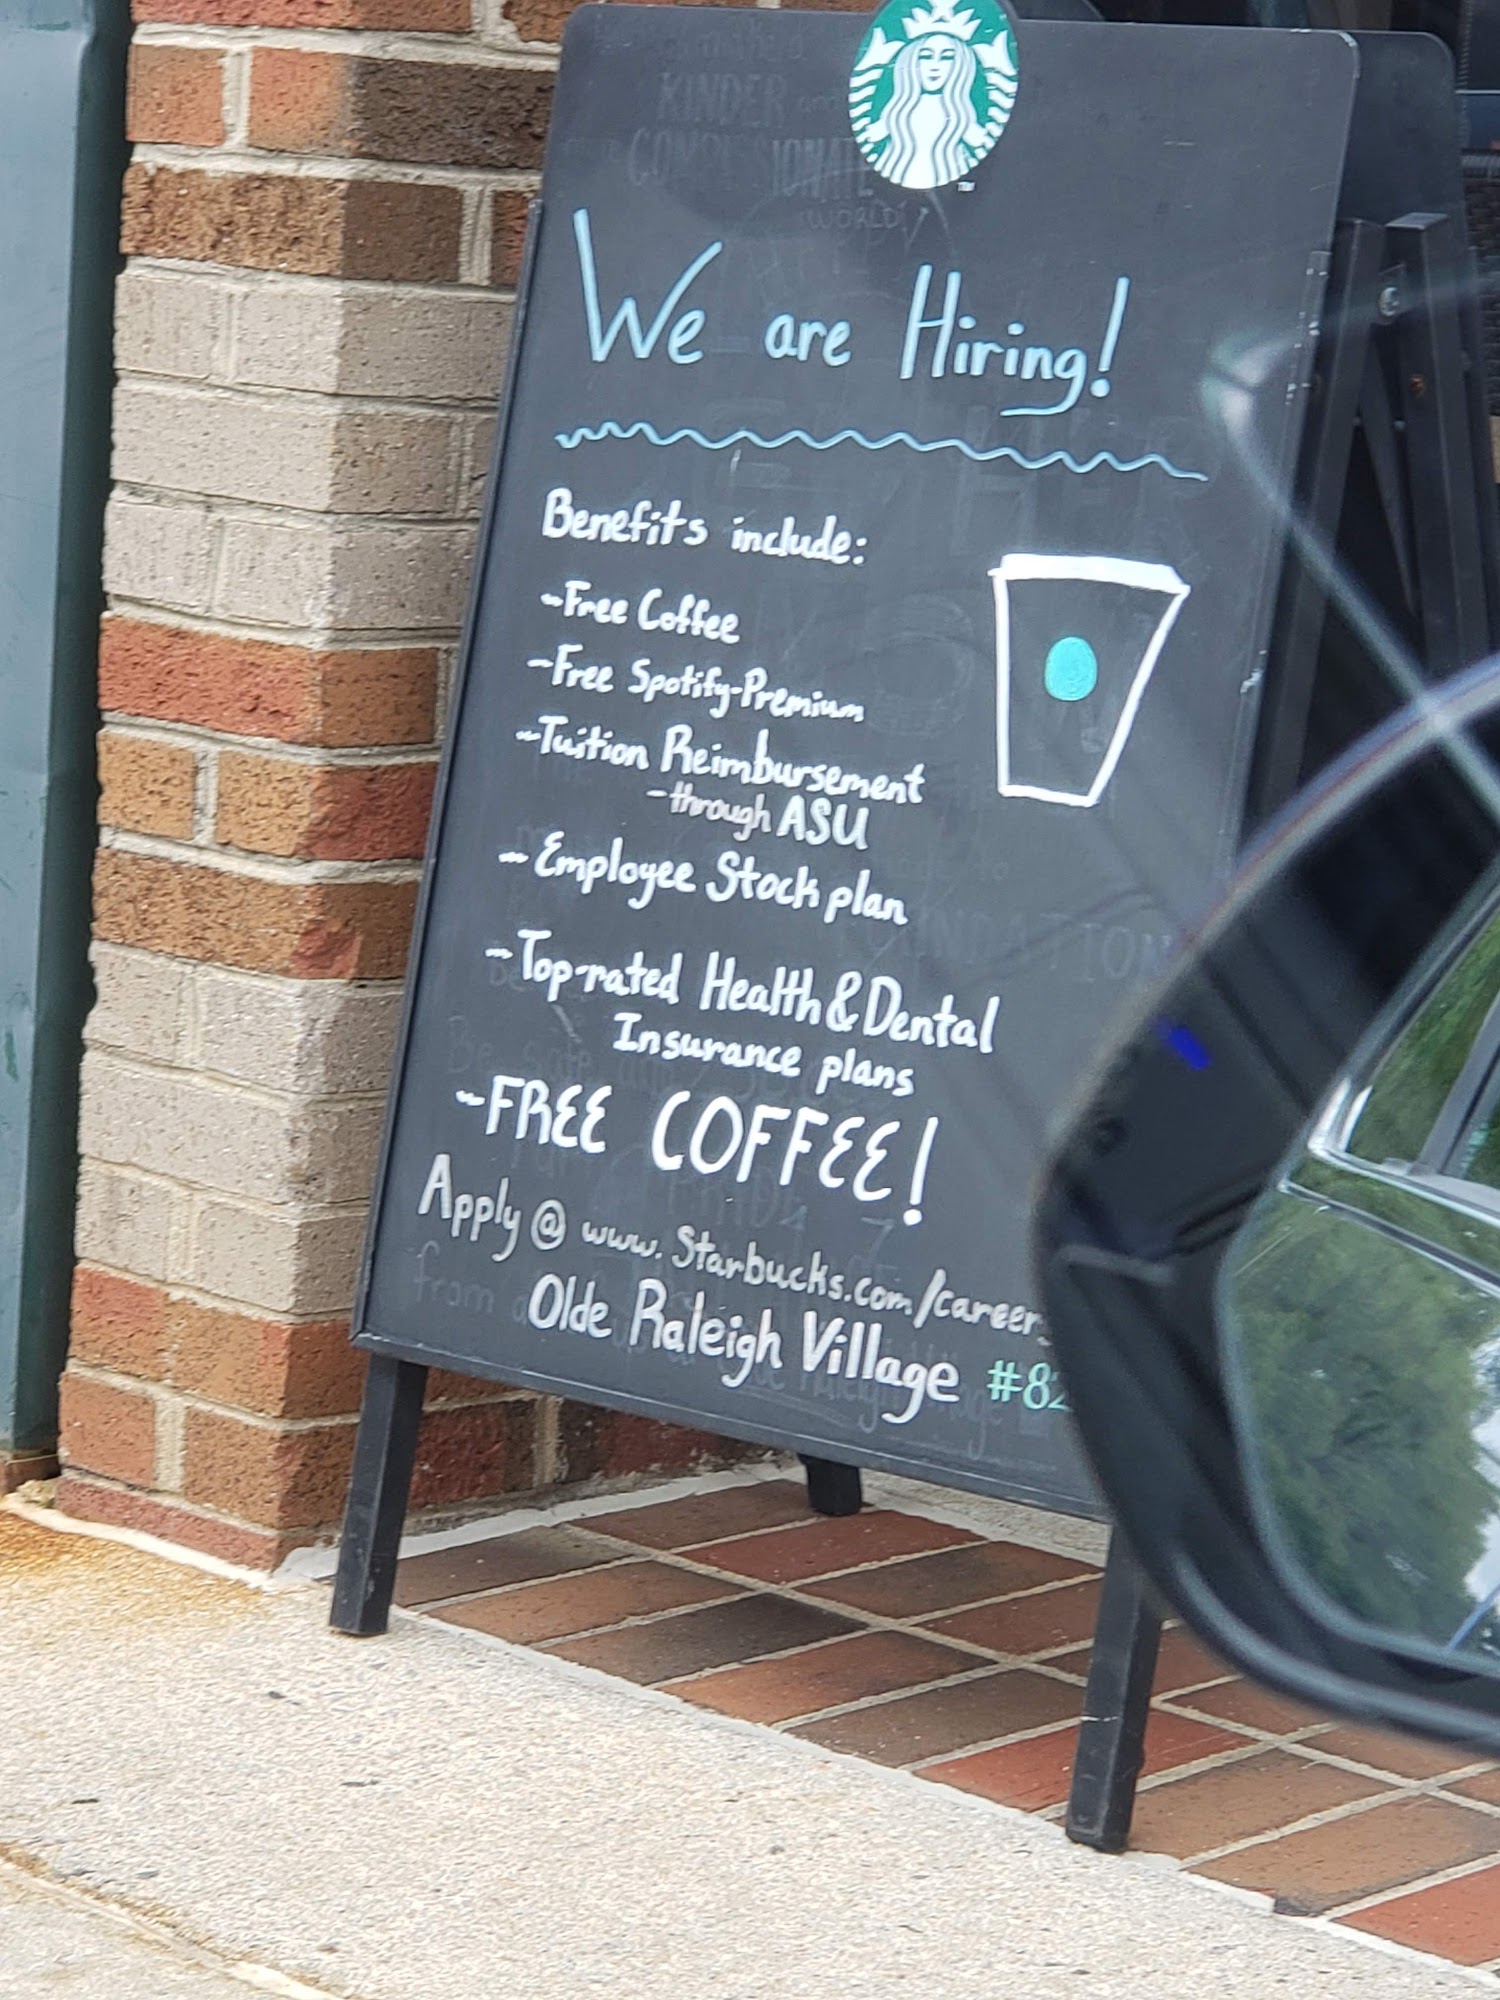 KINDER and
COMPASSIONATE
WORLD!
™
We are Hiring!
Benefits include:
~Free Coffee
~Free Spotify-Premium
~Tuition Reimbursement
-through ASU
~Employee Stock plan
~Top-rated Health & Dental
Insurance plans
~FREE COFFEE!
Apply @ www.Starbucks.com/careers
Olde Raleigh Village #82